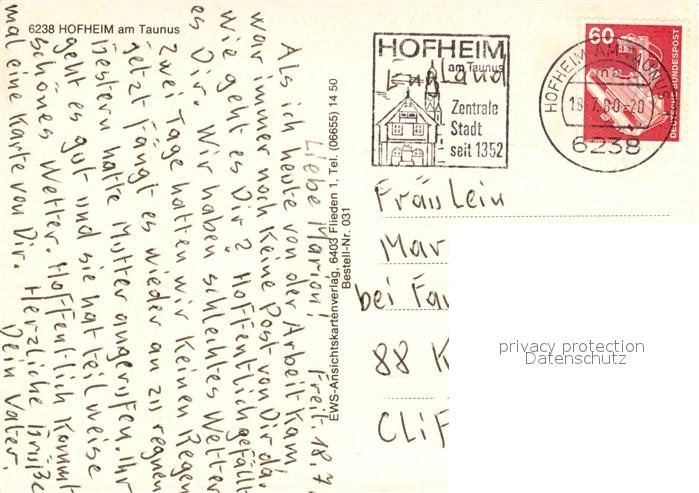 6238 HOFHEIM am Taunus
Liebe Marion! Freit. 18.7.
Als ich heute von der Arbeit kam
war immer noch keine Post von Dir da.
Wie geht es Dir? Hoffentlich gefällt
es Dir. Wir haben schlechtes Wetter
zwei Tage hatten wir keinen Regen
jetzt fängt es wieder an zu regnen
Gestern hatte Mutter angerufen. Ihr
geht es gut und sie hat teilweise
schönes Wetter. Hoffentlich kommt
mal eine Karte von Dir. Herzliche Grüße
Dein Vater.
EWS-Ansichtskartenverlag, 6403 Flieden 1, Tel. (06655) 14 50
Bestell-Nr. 031
HOFHEIM
am Taunus
England
Zentrale
Stadt
seit 1352
HOFHEIM AM TAUNUS
18.7.80-20
6238
60
DEUTSCHE BUNDESPOST
Fräulein
Mar
bei Fa
88 K
CLIF
privacy protection
Datenschutz